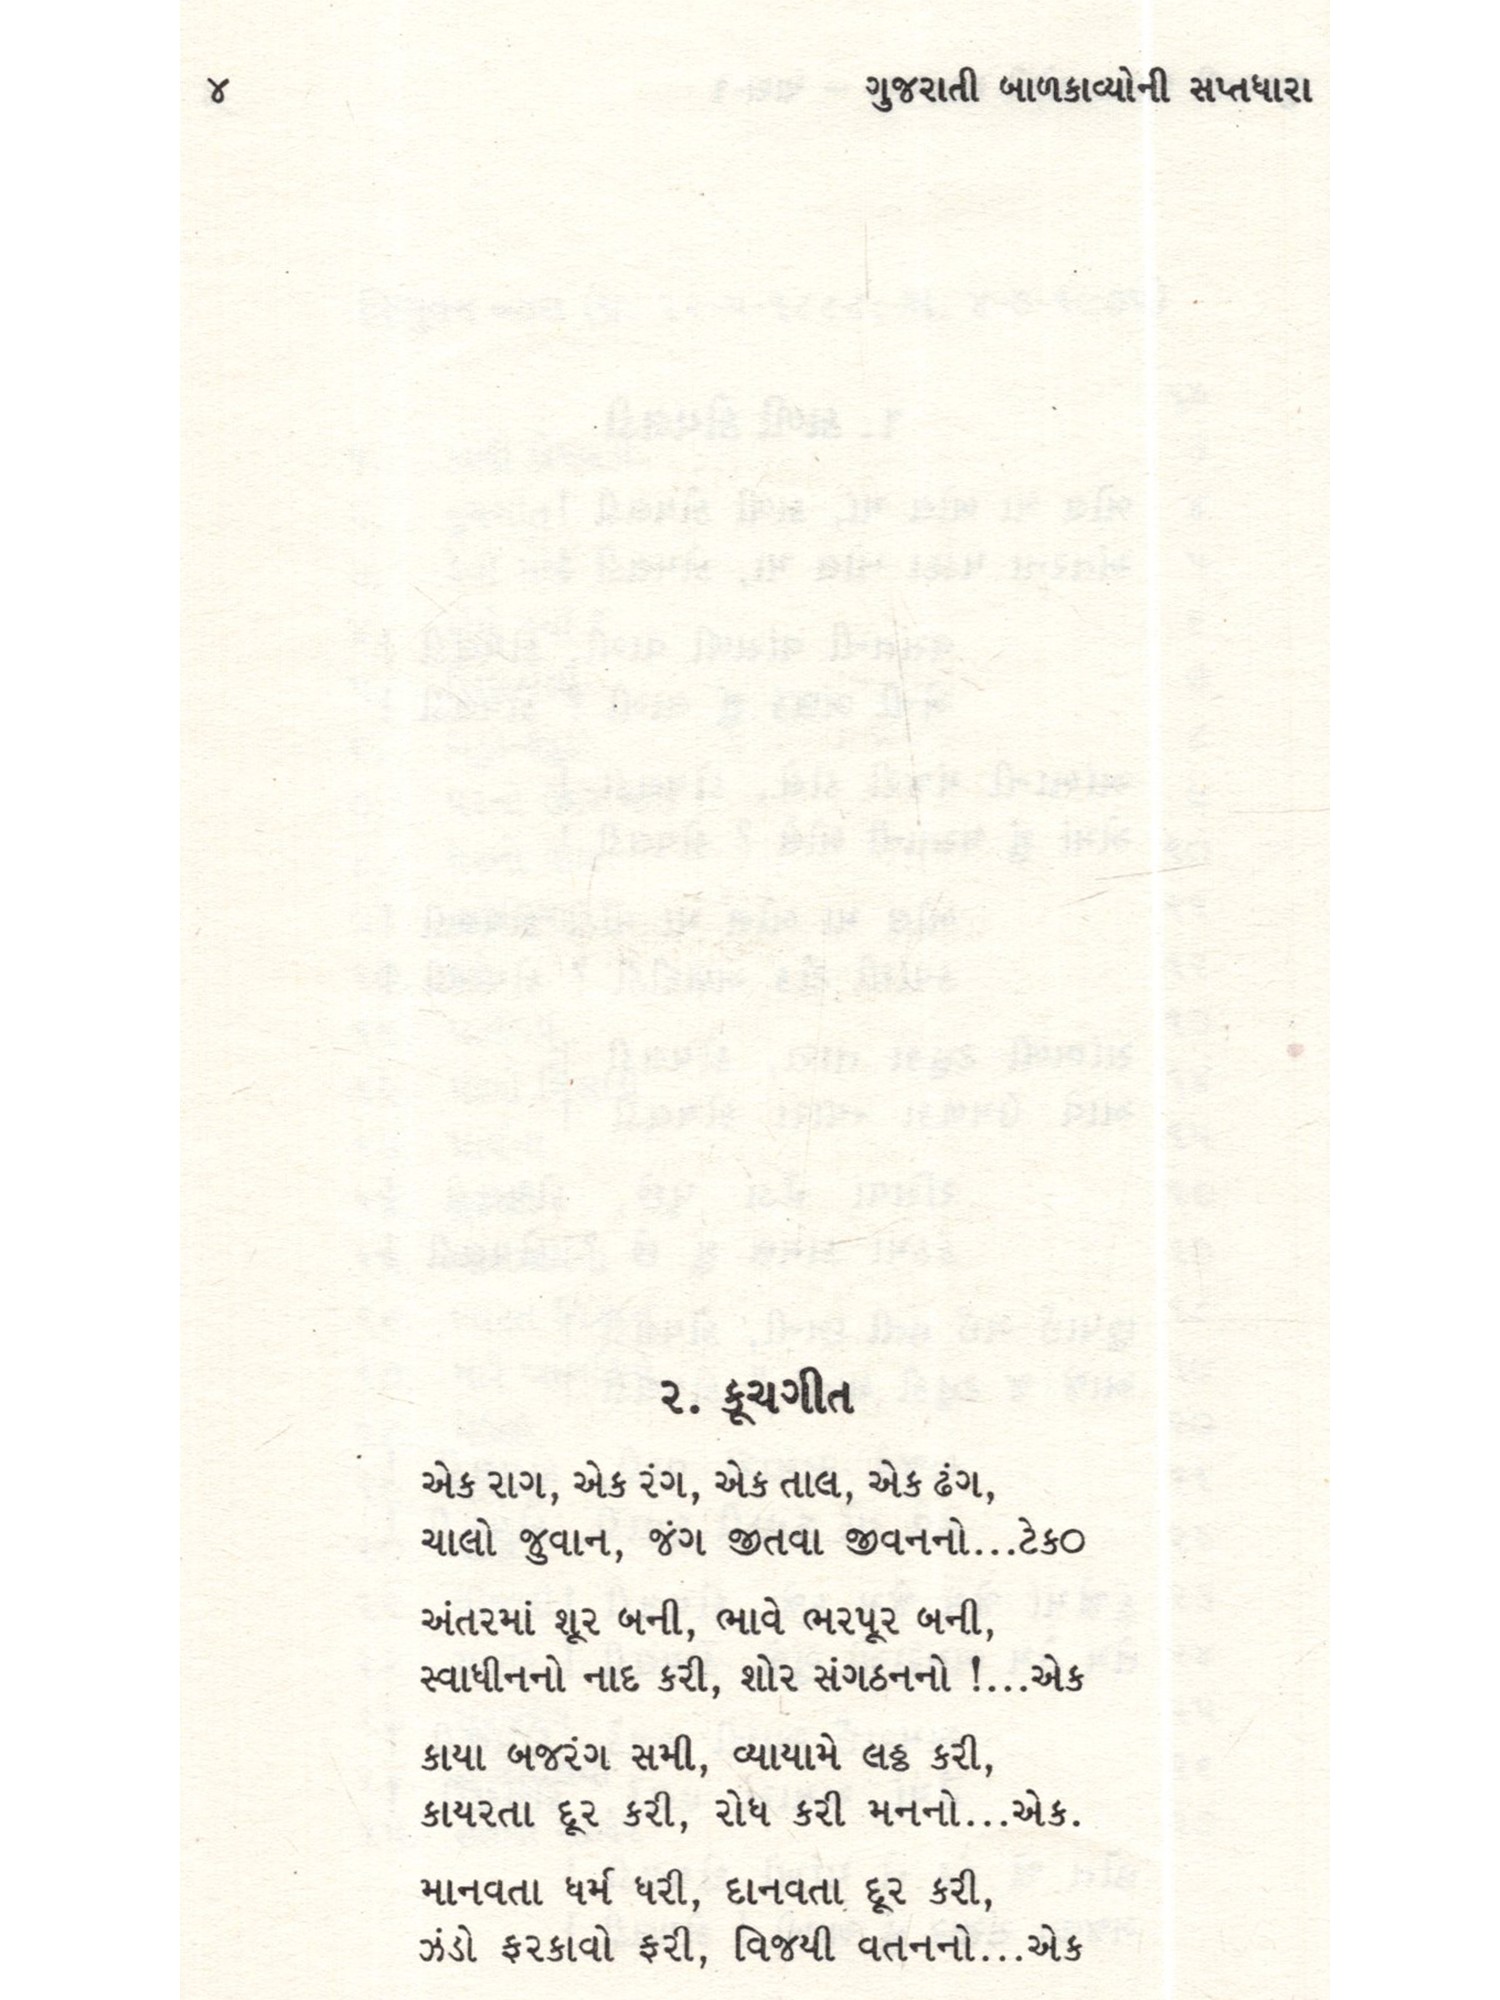 ૪ ગુજરાતી બાળકાવ્યોની સપ્તધારા
૨. કૂચગીત
એક રાગ, એક રંગ, એક તાલ, એક ઢંગ,
ચાલો જુવાન, જંગ જીતવા જીવનનો...ટેક૦
અંતરમાં શૂર બની, ભાવે ભરપૂર બની,
સ્વાધીનનો નાદ કરી, શોર સંગઠનનો !...એક
કાયા બજરંગ સમી, વ્યાયામે લઠ્ઠ કરી,
કાયરતા દૂર કરી, રોધ કરી મનનો...એક.
માનવતા ધર્મ ધરી, દાનવતા દૂર કરી,
ઝંડો ફરકાવો ફરી, વિજયી વતનનો...એક